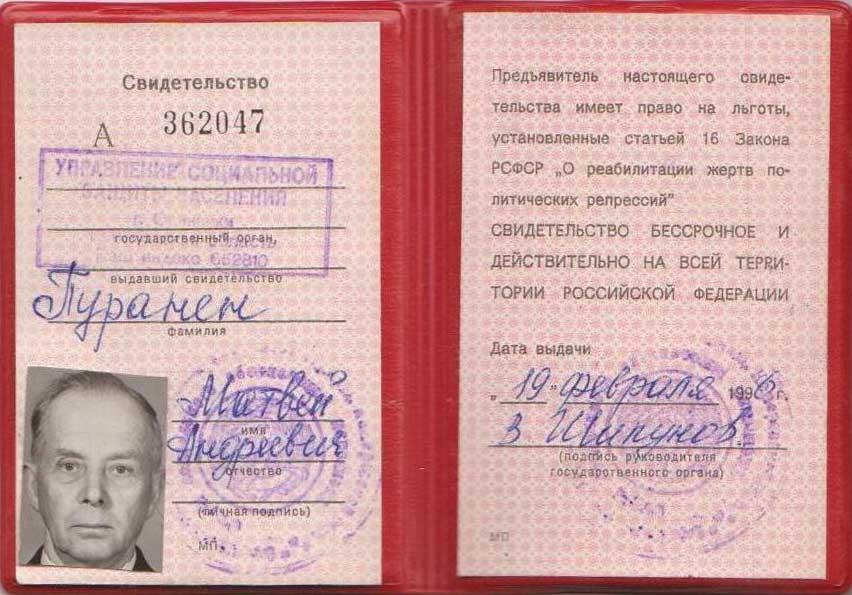 Свидетельство
А 362047
УПРАВЛЕНИЕ СОЦИАЛЬНОЙ
ЗАЩИТЫ НАСЕЛЕНИЯ
государственный орган,
индекс 662810
выдавший свидетельство
Пуранен
фамилия
Матвей
имя
Андреевич
отчество
(личная подпись)
МП
Предъявитель настоящего свиде-
тельства имеет право на льготы,
установленные статьей 16 Закона
РСФСР „О реабилитации жертв по-
литических репрессий"
СВИДЕТЕЛЬСТВО БЕССРОЧНОЕ И
ДЕЙСТВИТЕЛЬНО НА ВСЕЙ ТЕРРИ-
ТОРИИ РОССИЙСКОЙ ФЕДЕРАЦИИ
Дата выдачи
„19" февраля 1996 г.
З Шипунов
(подпись руководителя
государственного органа)
МП